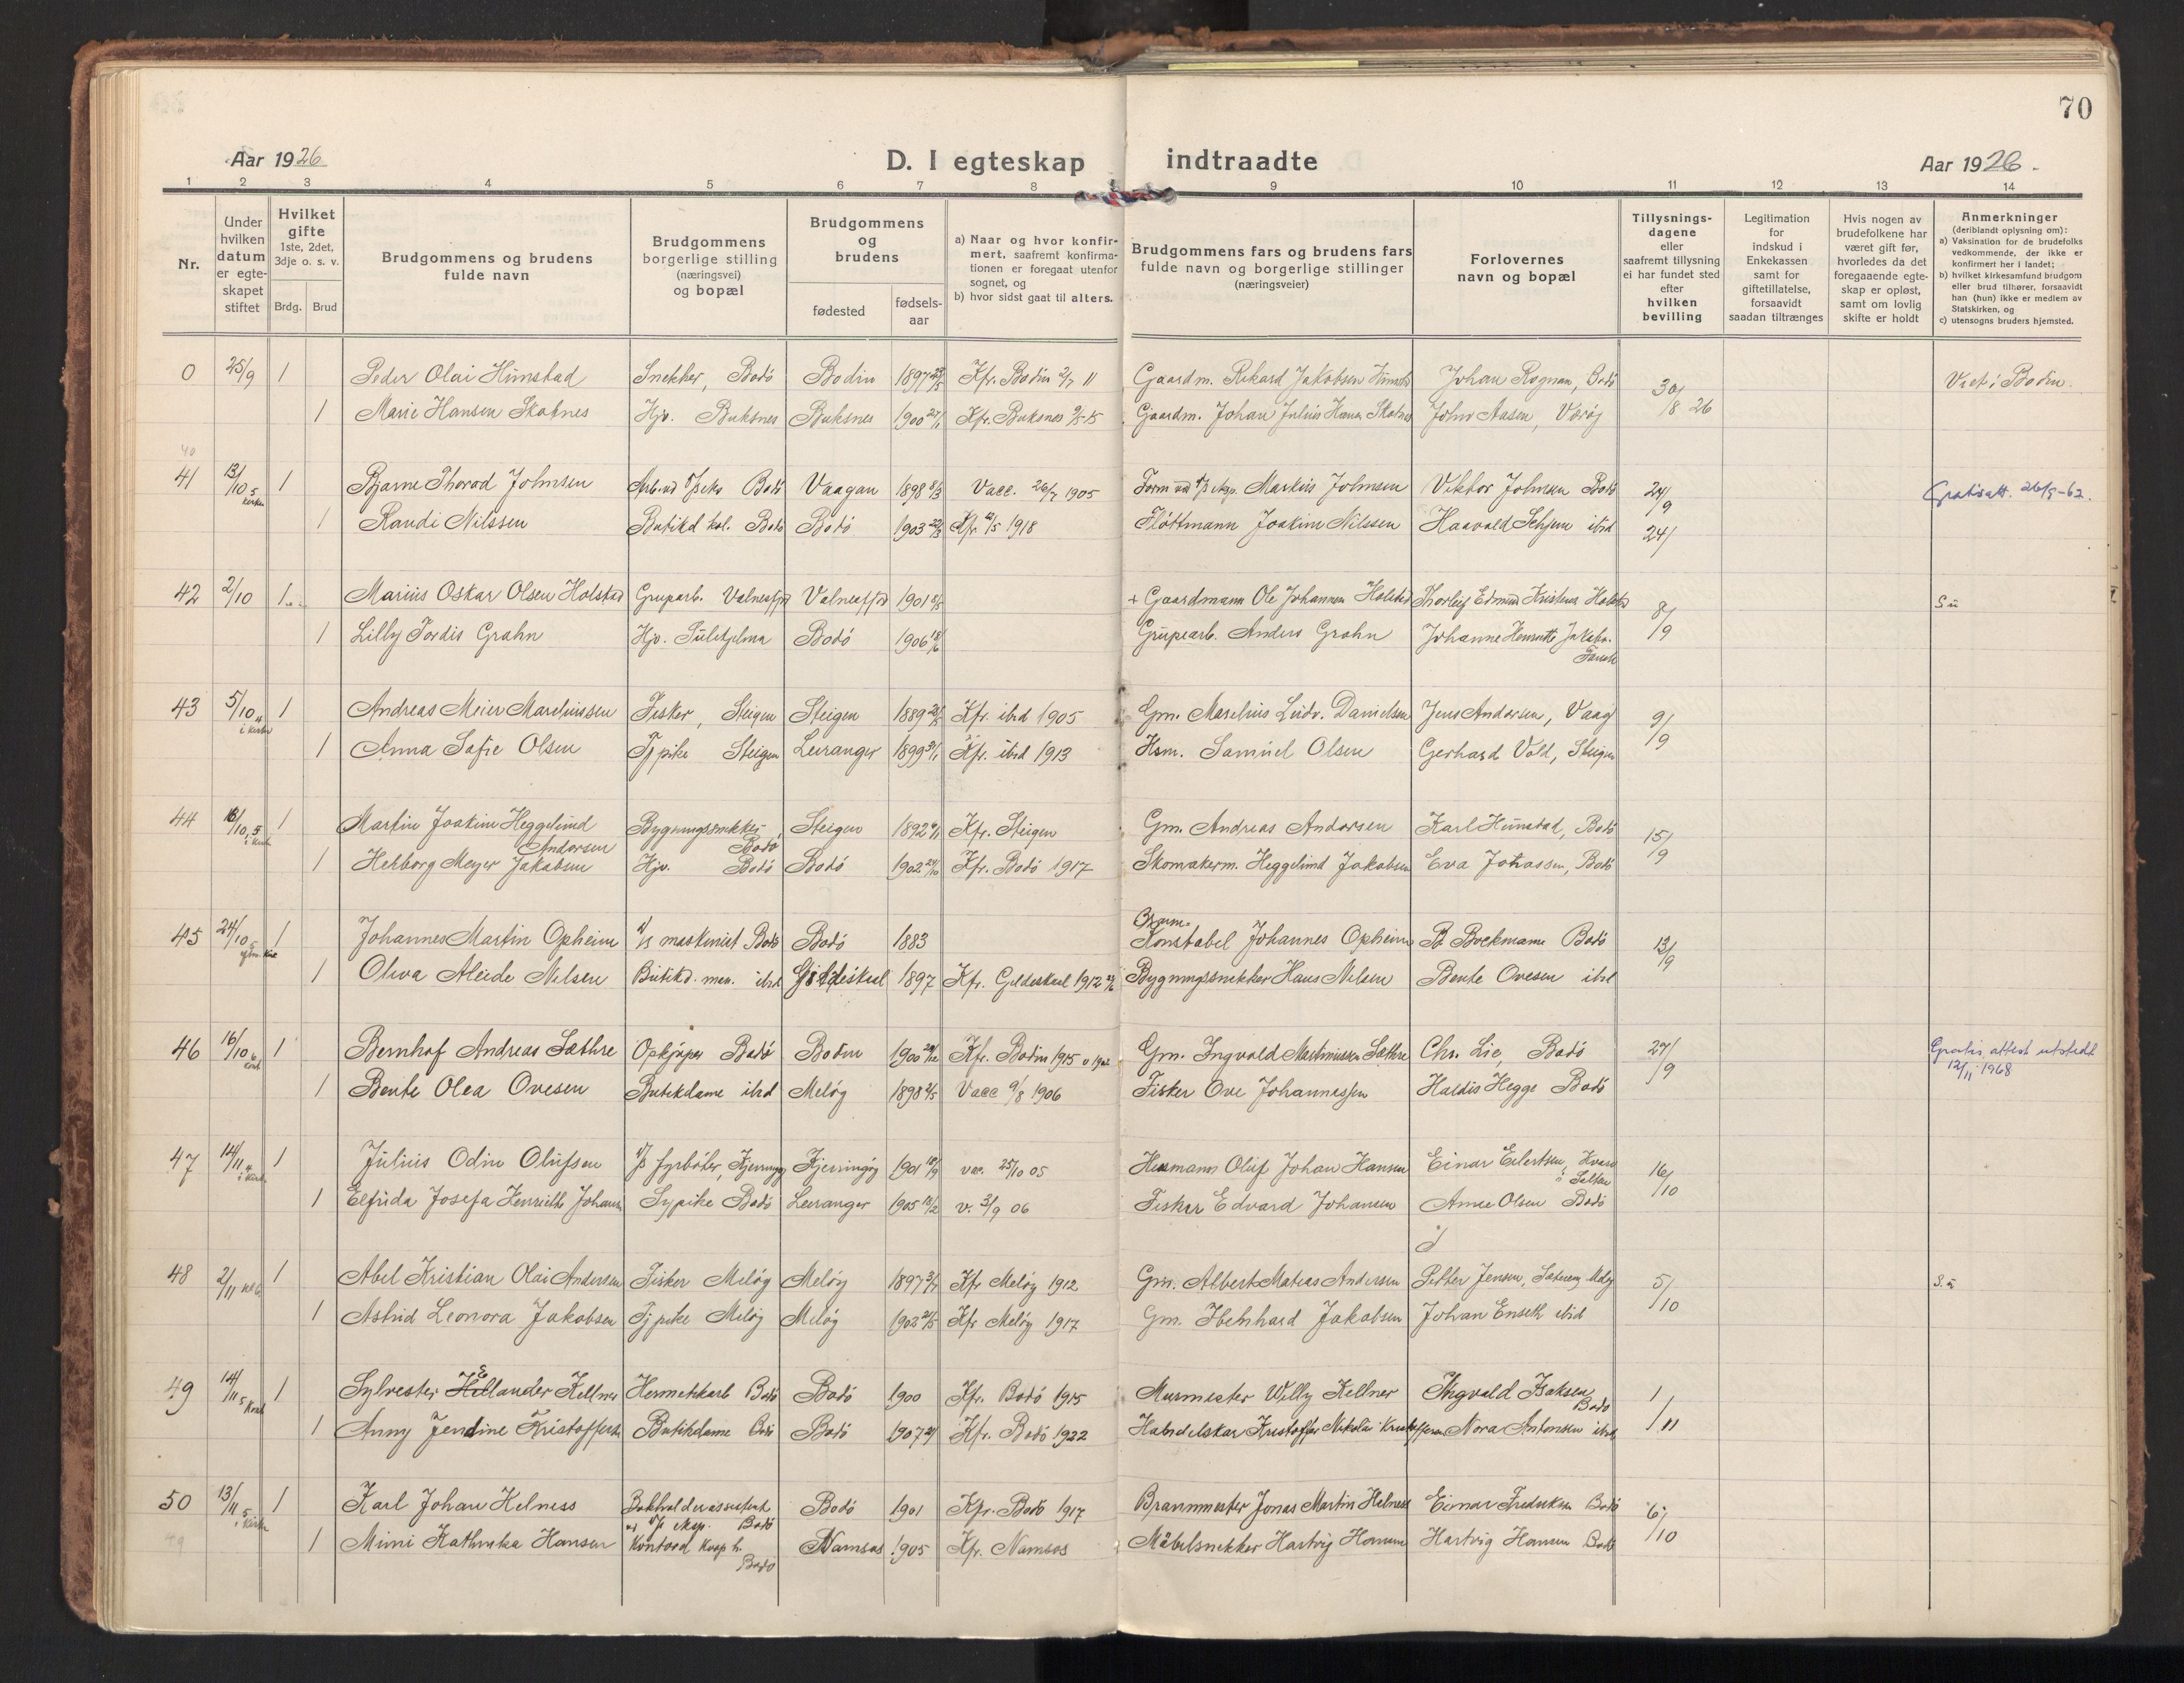 70
Aar 1926
D. I egteskap indtraadte
Aar 1926.
1 2 3 4 5 6 7 8 9 10 11 12 13 14
Nr.
Under hvilken datum er egteskapet stiftet
Hvilket gifte 1ste, 2det, 3dje o. s. v.
Brdg. Brud
Brudgommens og brudens fulde navn
Brudgommens borgerlige stilling (næringsvei) og bopæl
Brudgommens og brudens
fødested
fødsels-aar
a) Naar og hvor konfirmert, saafremt konfirmationen er foregaaet utenfor sognet, og
b) hvor sidst gaat til alters.
Brudgommens fars og brudens fars fulde navn og borgerlige stillinger (næringsveier)
Forlovernes navn og bopæl
Tillysningsdagene eller saafremt tillysning ei har fundet sted efter hvilken bevilling
Legitimation for indskud i Enkekassen samt for giftetillatelse, forsaavidt saadan tiltrænges
Hvis nogen av brudefolkene har været gift før, hvorledes da det foregaaende egteskap er opløst, samt om lovlig skifte er holdt
Anmerkninger (deriblandt oplysning om):
a) Vaksination for de brudefolks vedkommende, der ikke er konfirmert her i landet;
b) hvilket kirkesamfund brudgom eller brud tilhører, forsaavidt han (hun) ikke er medlem av Statskirken, og
c) utensogns bruders hjemsted.
0 25/9 1 Peder Olai Hunstad Snekker, Bodö Bodin 1897 Kfr. Bodin 2/7 11 Gaardm. Rikard Jakobsen Hunstad Johan Rognan, Bodö 30/8 26 Viet i Bodin.
1 Marie Hansen Skotnes Hjv. Buksnes Buksnes 1900 Kfr. Buksnes Gaardm. Johan Julius Hansen Skotnes John Aasen, Væröj
40
41 13/10 5 kirken 1 Bjarne Thorod Johnsen Bodö Vaagan 1898 8/3 Vacc. 26/7 1905 Markus Johnsen Viktor Johnsen Bodö 24/9 Gratisatt. 26/9-62.
1 Randi Nilssen Butikd. kol. Bodö Bodö 1903 Kfr. 1918 Flöttmann Joakim Nilssen Haavald Schjem ibid 24/
42 2/10 1 Marius Oskar Olsen Holstad Gruparb. Valnesfjord Valnesfjord 1901 + Gaardmann Ole Johannes Holstad Thorleif Edmund Kristensen Holstad 8/9 S u
1 Lilly Tordis Grahn Hjv. Sulitjelma Bodö 1906 18/6 Grupearb. Anders Grahn Johanne Henriette Jakobs. Fauske
43 5/10 4 i kirken 1 Andreas Meier Marelinssen Fisker, Steigen Steigen 1889 Kfr. ibid 1905 Gm. Marelius Ludv. Danielsen Jens Andersen, Vaag 9/9
1 Anna Sofie Olsen Tj pike Steigen Leiranger 1899 Kfr. ibid 1913 Hsm. Samuel Olsen Gerhard Vold, Steigen
44 16/10 5 i kirken 1 Martin Joakim Heggelund Andorsen Bygningssnekker, Bodö Steigen 1892 Kfr. Steigen Gm. Andreas Andorsen Karl Hunstad, Bodö 15/9
1 Helborg Meyer Jakobsen Hjv. Bodö Bodö 1902 24/10 Kfr. Bodö 1917 Skomakerm. Heggelund Jakobsen Eva Johassen, Bodö
45 24/10 5 1 Johannes Martin Opheim maskinist Bodö Bodö 1883 Konstabel Johannes Opheim B. Boekmann Bodö 13/9
1 Oliva Aleide Nilsen Butikd. man. ibid Gildeskaal 1897 Kfr. Gildeskaal 1912 Bygningssnekker Hans Nilsen Bente Ovesen ibid
46 16/10 6 1 Bernhof Andreas Sæthre Opkjöper Bodö Bodin 1900 Kfr. Bodin 1915 Gm. Ingvald Martiniussen Sæthre Chr. Lie, Bodö 27/9 Gratis attest utstedt 12/11 1968
1 Bente Olea Ovesen Butikdame ibid Melöy 1898 2/5 Vacc 9/8 1906 Fisker Ove Johannessen Haldis Hegge Bodö
47 14/11 4 i kirken 1 Julius Odin Olufsen fyrböter, Kjerringöy Kjerringöy 1901 18/9 vac. 25/10 05 Hermann Oluf Johan Hansen Einar Eilertsen, 16/10
1 Elfrida Josefa Henriette Johansen Sypike Bodö Leiranger 1905 v. 3/9 06 Fisker Edvard Johansen Anne Olsen Bodö
48 2/11 kl 6 1 Abel Kristian Olai Andersen Fisker Melöy Melöy 1897 3/7 Kfr Melöy 1912 Gm. Albert Matias Andersen Petter Jensen, Melöy 5/10 S. u
1 Astrid Leonora Jakobsen Tj pike Melöy Melöy 1902 Kfr Melöy 1917 Gm. Ebenhard Jakobsen Johan Enseth ibid
49 14/11 5 1 Sylvester Ellander Kellner Hermetikarb Bodö Bodö 1900 Kfr. Bodö 1915 Murmester Willy Kellner Ingvald Isaksen Bodö 1/11
1 Anny Jendine Kristoffersen Butikdame Bodö Bodö 1907 Kfr. Bodö 1922 Handelskar Kristoffer Nikolai Kristoffersen Nora Antonsen ibid
50 13/11 5 i kirken 1 Karl Johan Helness Bokholderassistent Bodö Bodö 1901 Kfr. Bodö 1917 Branmester Jonas Martin Helness Einar Fredriksen Bodö 6/10
49 1 Mimi Kathinka Hansen Kontord Koop h. Bodö Namsos 1905 Kfr. Namsos Möbelsnekker Hartvig Hansen Hartvig Hansen Bodö